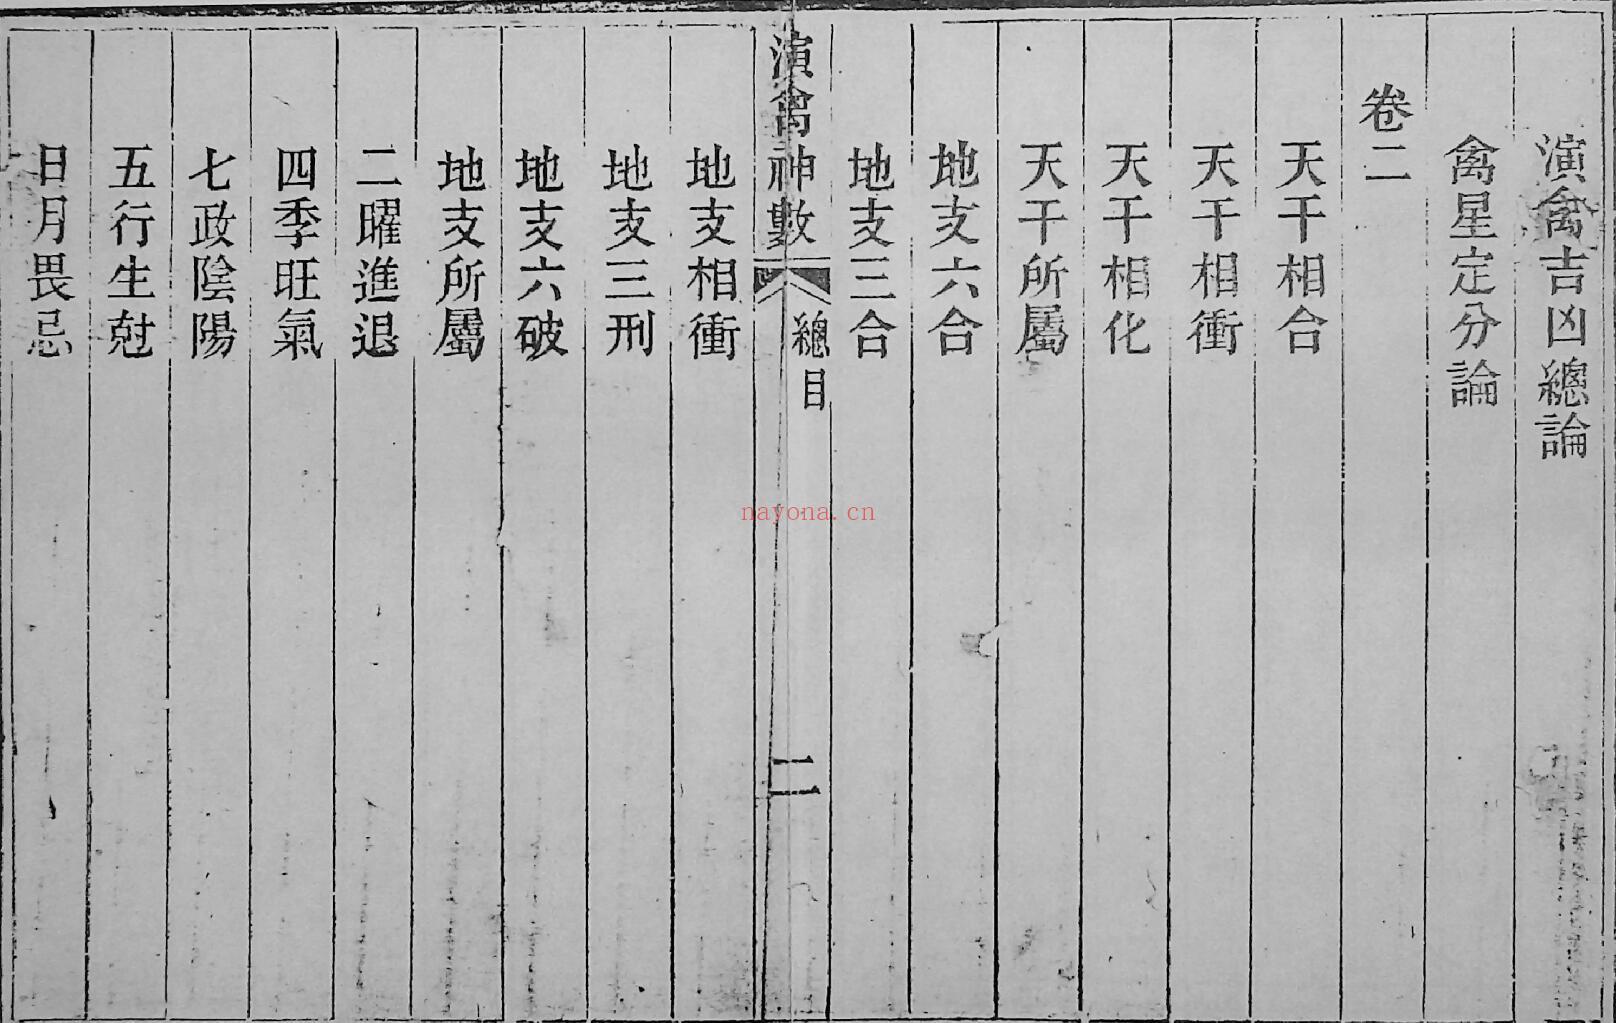 演禽吉凶總論
禽星定分論
卷二
天干相合
天干相衝
天干相化
天干所屬
地支六合
地支三合
演禽神數
總目
二
地支相衝
地支三刑
地支六破
地支所屬
二曜進退
四季旺氣
七政陰陽
五行生尅
日月畏忌
nayona.cn